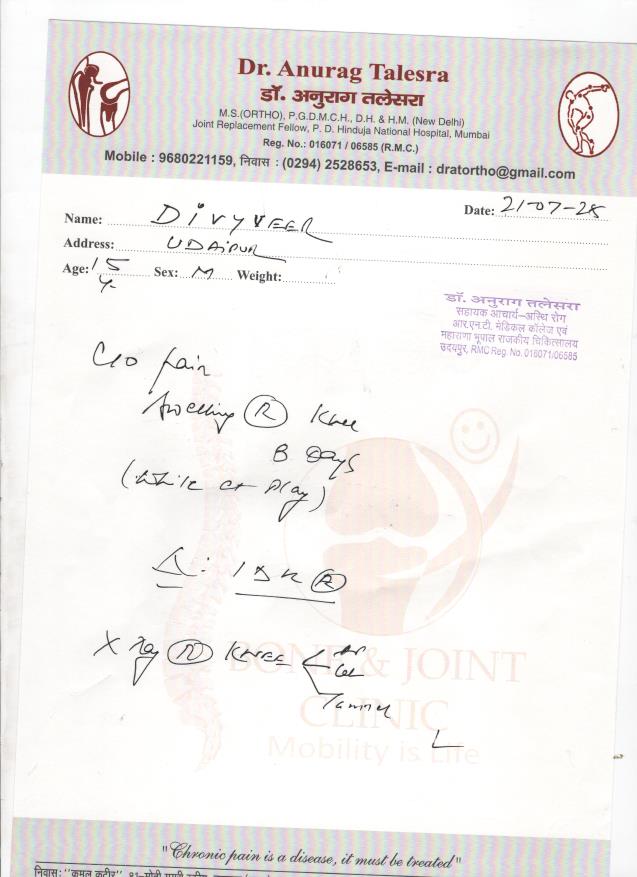 Dr. Anurag Talesra
डॉ. अनुराग तलेसरा
M.S.(ORTHO), P.G.D.M.C.H., D.H. & H.M. (New Delhi)
Joint Replacement Fellow, P. D. Hinduja National Hospital, Mumbai
Reg. No.: 016071 / 06585 (R.M.C.)
Mobile : 9680221159, निवास : (0294) 2528653, E-mail : dratortho@gmail.com
Date: 21-07-28
Name: DIVYVEER
Address: UDAIPUR
Age: 15 Sex: M Weight:
Y.
डॉ. अनुराग तलेसरा
सहायक आचार्य-अस्थि रोग
आर.एन.टी. मेडिकल कॉलेज एवं
महाराणा भूपाल राजकीय चिकित्सालय
उदयपुर, RMC Reg. No. 016071/06585
C/o pain
swelling (R) Knee
Days
(while at Play)
Δ: IDK (R)
X Ray (R) KNEE < AP
Lat
Tunnel
BONE & JOINT
CLINIC
Mobility is Life
"Chronic pain is a disease, it must be treated"